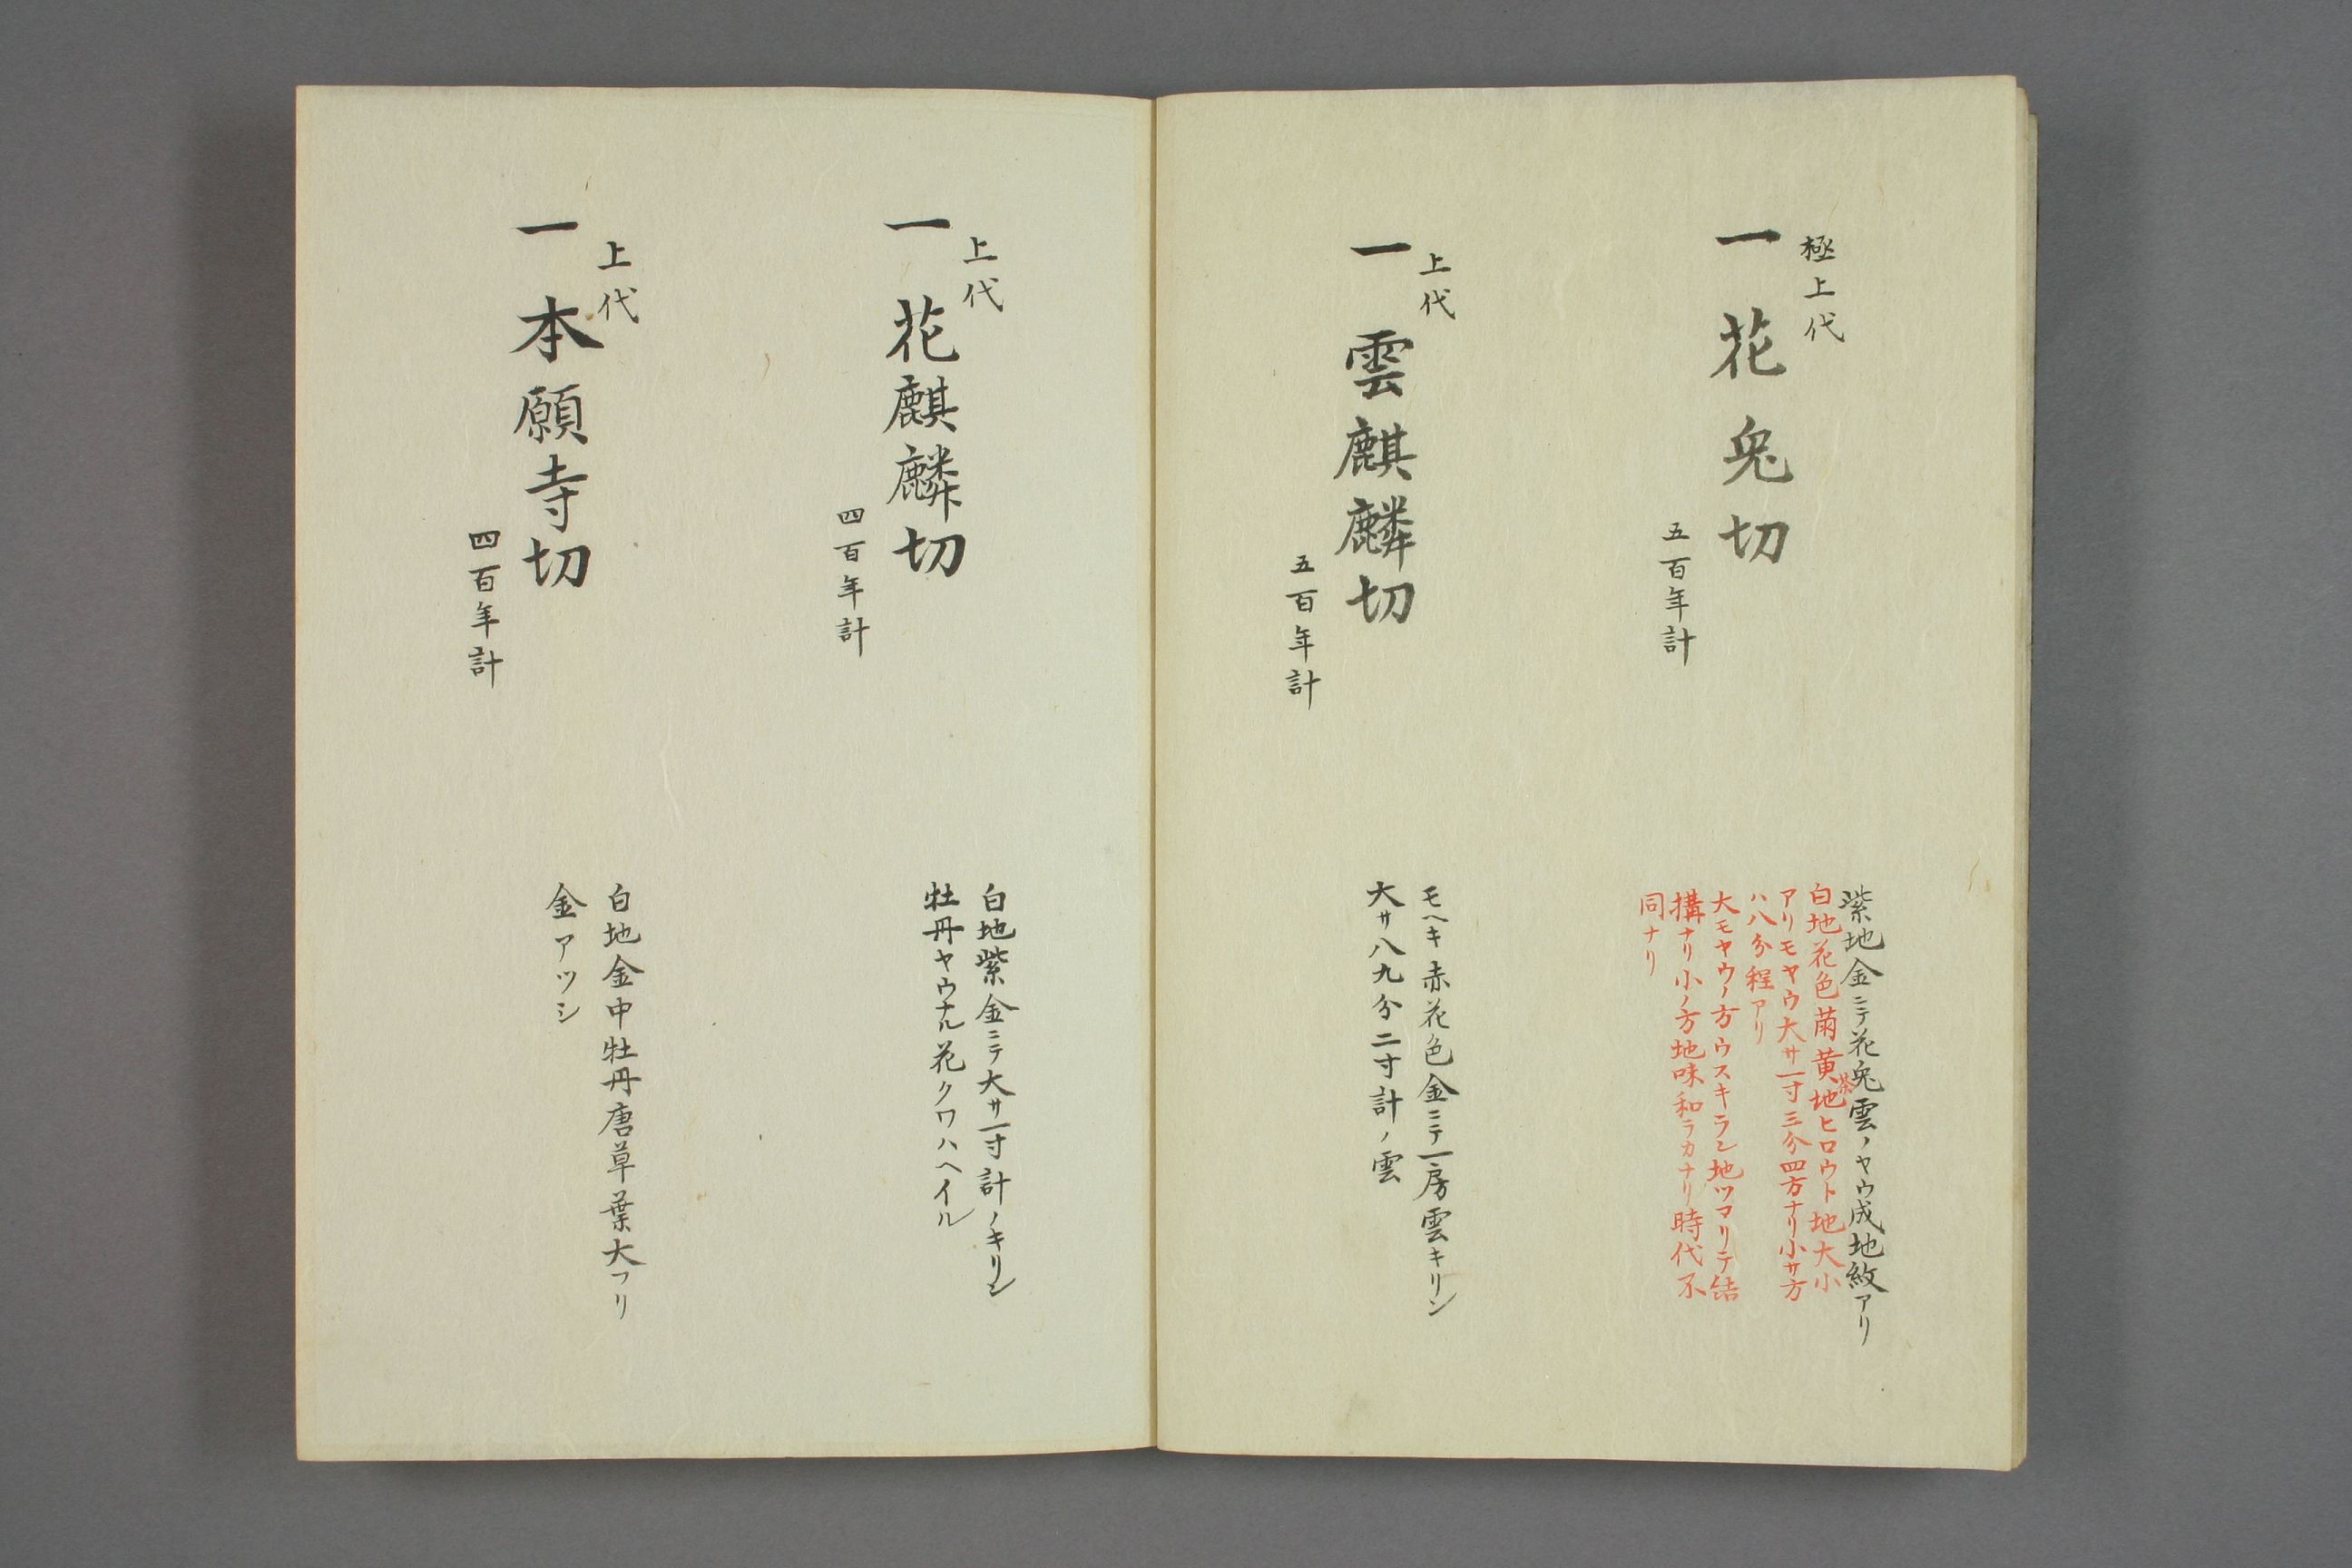 極上代
一 花兎切
五百年計
紫地金ニテ花兎雲ノヤウ成地紋アリ
白地花色萠黄地ヒロウト地大小
茶
アリモヤウ大サ一寸三分四方ナリ小サ方
ハ八分程アリ
大モヤウノ方ウスキラン地ツマリテ結
搆ナリ小ノ方地味和ラカナリ時代不
同ナリ
上代
一 雲麒麟切
五百年計
モヘキ赤花色金ニテ一房雲キリン
大サ八九分二寸計ノ雲
上代
一 花麒麟切
四百年計
白地紫金ニテ大サ一寸計ノキリン
牡丹ヤウナル花クワハヘイル
上代
一 本願寺切
四百年計
白地金中牡丹唐草葉大フリ
金アツシ